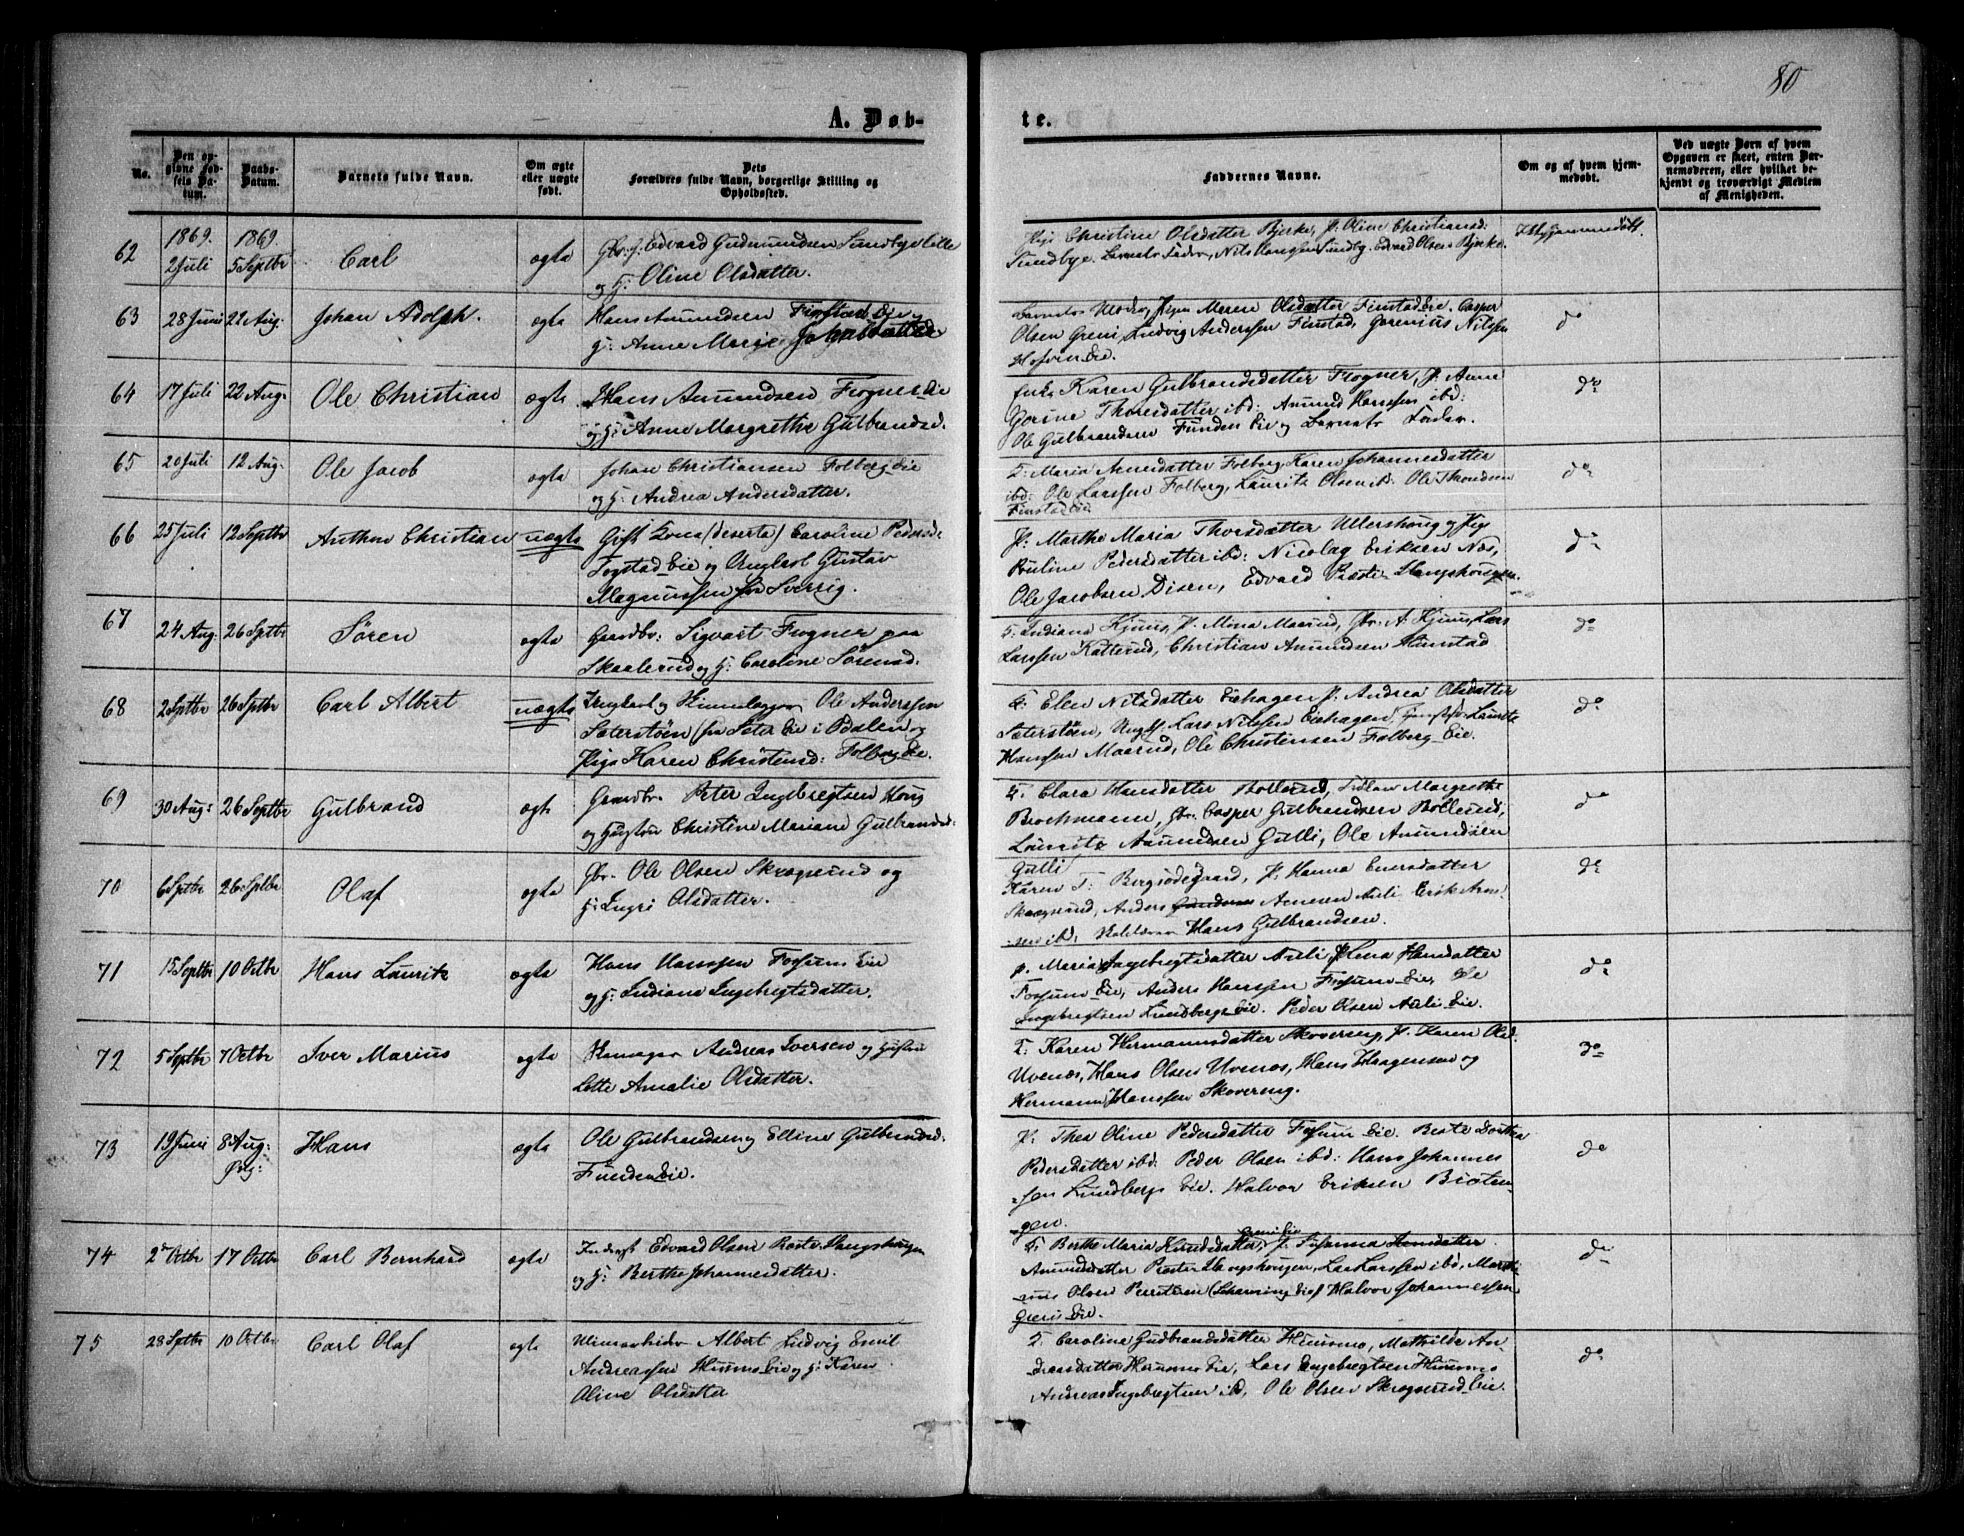 80
A. Døb-
te.
No.
Den op-
givne Fød-
sels Da-
tum.
Daabs-
Datum.
Barnets fulde Navn.
Om ægte
eller uægte
født.
Dets
Forældres fulde Navn, borgerlige Stilling og
Opholdssted.
Faddernes Navne.
Om og af hvem hjem-
medøbt.
Ved uægte Børn af hvem
Opgaven er skeet, enten Bar-
nemoderen, eller hvilket be-
kjendt og troværdigt Medlem
af Menigheden.
62
1869.
2 Juli
1869.
5 Septbr
Carl
ægte
Gbr. f. Edvard Gudmundsen Sundbye lille
og H: Oline Olsdatter.
Pige Christine Olsdatter Bjerke, P. Oline Christiansd:
Sundbye. Barnets Fader, Nils Hansen Sundby. Edvard Olsen Bjerke.
Ikke hjemmedøbt.
63
28 Juni
22 Aug:
Johan Adolph.
ægte
Hans Amundsen Finstad Eie og
H: Anne Marie
Barnets Moder, Pigen Maren Olsdatter Finstad Eie. Casper
Olsen Greni, Ludvig Anderssen Finstad, Gorenius Nilssen
Hofvin Eie.
do
64
17 Juli
22 Aug:
Ole Christian
ægte
Hans Amundsen Frogner Eie
og H: Anne Margrethe Gulbrandsd.
Enke Karen Gulbrandsdatter Frogner, P. Anne
Gorine Thorsdatter ibd: Amund Hanssen ibd:
Ole Gulbrandsen Funden Eie og Barnets Fader.
do
65
20 Juli
12 Aug:
Ole Jacob
ægte
Johan Christiansen Folberg Eie
og H: Andrea Andersdatter.
Maria Arnesdatter Folberg, Karen Johannesdatter
ibd: Ole Larssen Folberg, Lauritz Olsen ibd: Ole Thordsen
Finstad Eie
do
66
25 Juli
12 Septbr
Anthon Christian
uægte
Gift Kona (deserta) Caroline Pedersd:
Togstad Eie og Ungkarl Gustav
Magnussen fra Sverrig.
P. Marthe Maria Thorsdatter Ullershoug og Pige
Pauline Pedersdatter ibd: Nicolay Eriksen Næs,
Ole Jacobsen Disen, Edvard Præste-Hangshougen.
do
67
24 Aug:
26 Septbr
Søren
ægte
Gaardbr: Sigvart Fogner paa
Skaalerud og H: Caroline Sørensd.
Indiana Kjuus, P. Mina Maarud, Gbr. A. Kjuus, Lars
Larssen Katterud, Christian Amundsen Hanstad
do
68
2 Septbr
26 Septbr
Carl Albert
uægte
Ungkarl og Ole Anderssen
Sæterstøen (fra Sæter Eie i Odalen og
Pige Karen Christensd: Folberg Eie.
Elen Nilsdatter Eiehagen, P. Andrea Olsdatter
Sæterstøen, Ungk. Lars Nilssen Eiehagen, Lauritz
Hanssen Maarud, Ole Christensen Folberg Eie.
do
69
30 Aug:
26 Septbr
Gulbrand
ægte
Gaardbr. Peter Ingebregtsen Houg
og Hustru Christine Mariane Gulbrandsd:
Clara Hansdatter Bollerud, Frøken Margrethe
Brochmann, Gbr. Casper Gulbrandsen Bollerud,
Lauritz Amundsen Gulli, Ole Amundsen
Gulli
do
70
6 Septbr
26 Septbr
Olaf
ægte
Gbr. Ole Olsen Skraperud og
H: Ingri Olsdatter.
Karen T: Bergsødegaard, P. Hanna Enersdatter
Skraperud, Anders Arnesen Auli Erik Arne-
sen ibd, Hans Gulbrandsen.
do
71
15 Septbr
10 Octbr
Hans Lauritz
ægte
Hans Hanssen Fossum Eie
og H: Indiana Ingebregtsdatter.
P. Maria Ingebregtsdatter Auli, P. Lina Hansdatter
Fossum Eie, Anders Hanssen Fossum Eie, Ole
Ingebregtsen Lundbergs Eie. Peder Olsen Auli Eie.
do
72
5 Septbr
7 Octbr
Iver Marius
ægte
Andreas Iversen og Hustru
Lette Amalie Olsdatter.
Karen Hermannsdatter Skovereng, P. Karen Olsd.
Uvenæs, Hans Olsen Uvenæs, Hans Haagensen og
Hermann Hanssen Skovereng.
do
73
19 Juni
8 Aug:
Hans
ægte
Ole Gulbrandsen og Elline Gulbrandsd.
Funden Eie.
P. Thea Oline Pedersdatter Fossum Eie. Beate Dorthea
Pedersdatter ibd: Peder Olsen ibd: Hans Johannes
sen Lundbergs Eie. Halvor Eriksen Braaten-
gen.
do
74
2 Octbr
17 Octbr
Carl Bernhard
ægte
Inderst Edvard Olsen Præste-Hangshougen
og H: Berthe Johannesdatter.
Greni Eie
Berthe Maria Knudsdatter, P. Susanna
Amundsdatter Præste-Hangshougen, Lars Larssen ibd, Marti-
nus Olsen Halvor Johannessen
Greni Eie.
do
75
28 Septbr
10 Octbr
Carl Olaf
ægte
Albert Ludvig Emil
Andreassen Huusmo Eie og H: Karen
Oline Olsdatter
Caroline Gudbrandsdatter Huusmo, Mathilde An-
dreasdatter Huusmo Eie, Lars Ingebregtsen Huusmo
Andreas Ingebregtsen ibd, Ole Olsen Skraperud Eie.
do